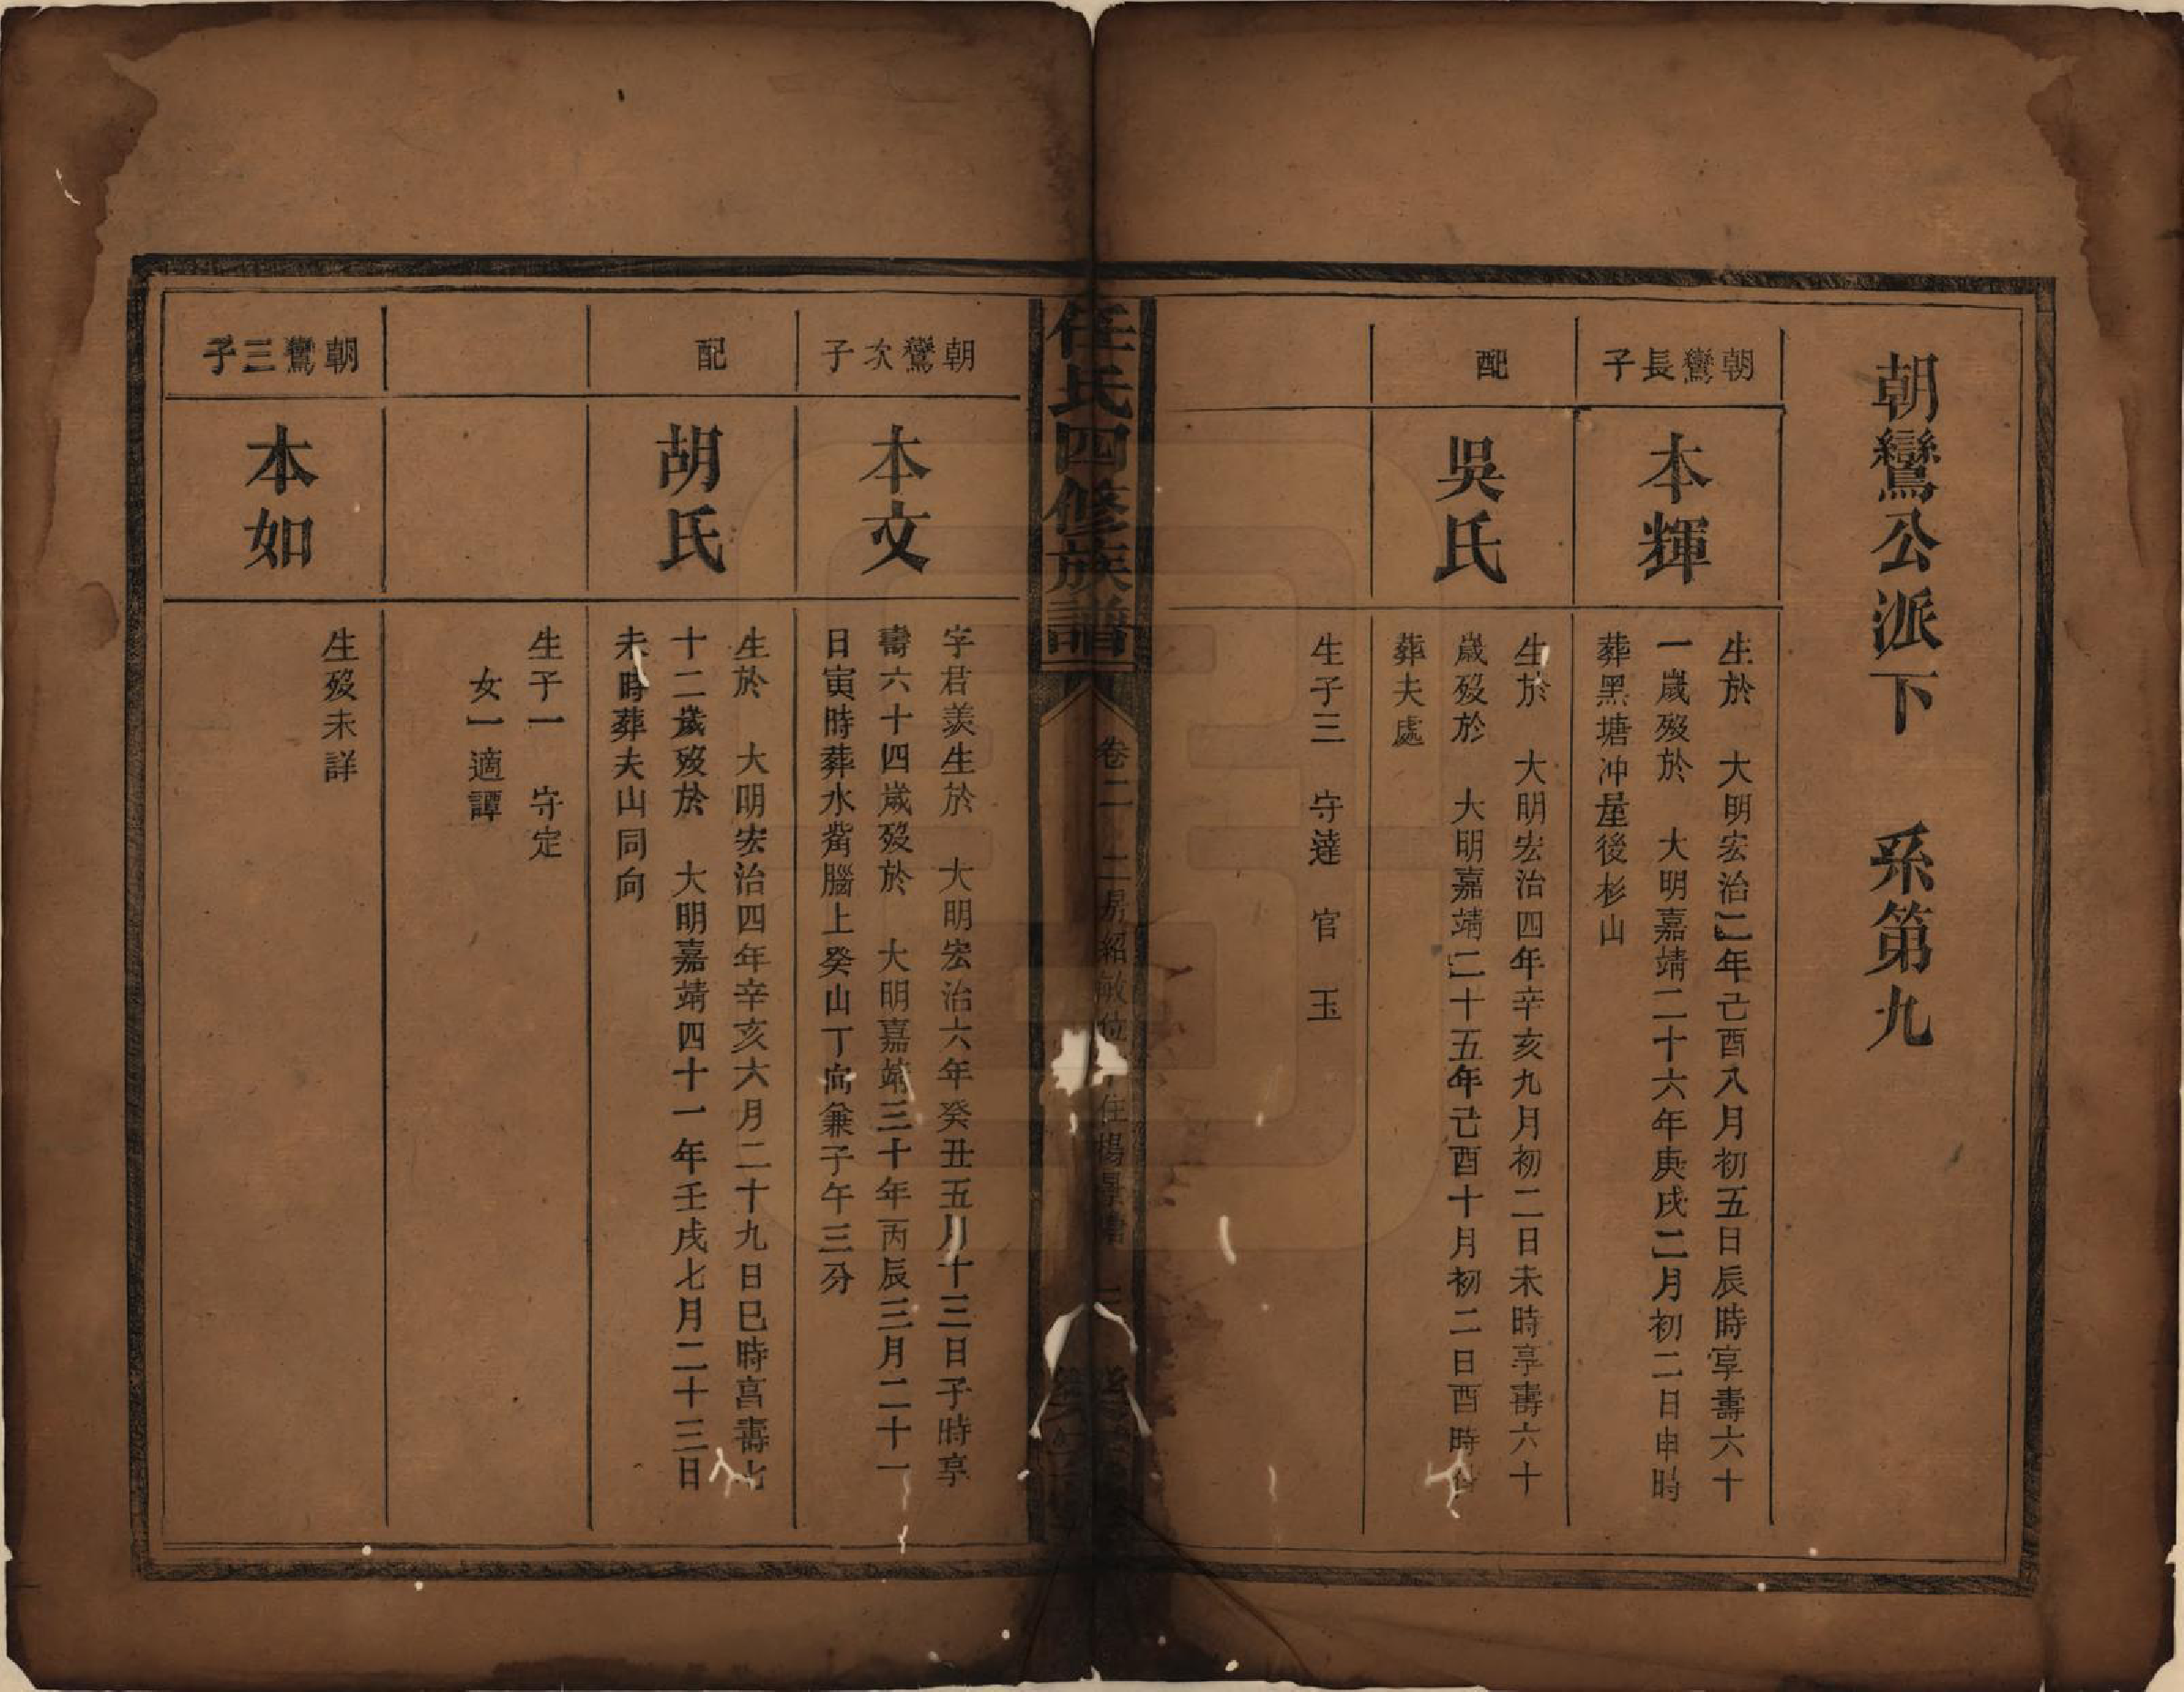 朝鸞公派下　系第九
朝鸞長子
本輝
生於　大明宏治二年己酉八月初五日辰時享壽六十
一歲殁於　大明嘉靖二十六年庚戌二月初二日申時
葬黑塘冲屋後杉山
配
吳氏
生於　大明宏治四年辛亥九月初二日未時享壽六十
歲殁於　大明嘉靖二十五年己酉十月初二日酉時
葬夫處
生子三　守達　官　玉
任氏四修族譜
卷二　二鼎紹敏位
住楊
朝鸞次子
本文
字君羙生於　大明宏治六年癸丑五月十三日子時享
壽六十四歲殁於　大明嘉靖三十年丙辰三月二十一
日寅時葬水觜腦上癸山丁向兼子午三分
配
胡氏
生於　大明宏治四年辛亥六月二十九日巳時享壽七
十二歲殁於　大明嘉靖四十一年壬戌七月二十三日
未時葬夫山同向
生子一　守定
女一適譚
朝鸞三子
本如
生殁未詳